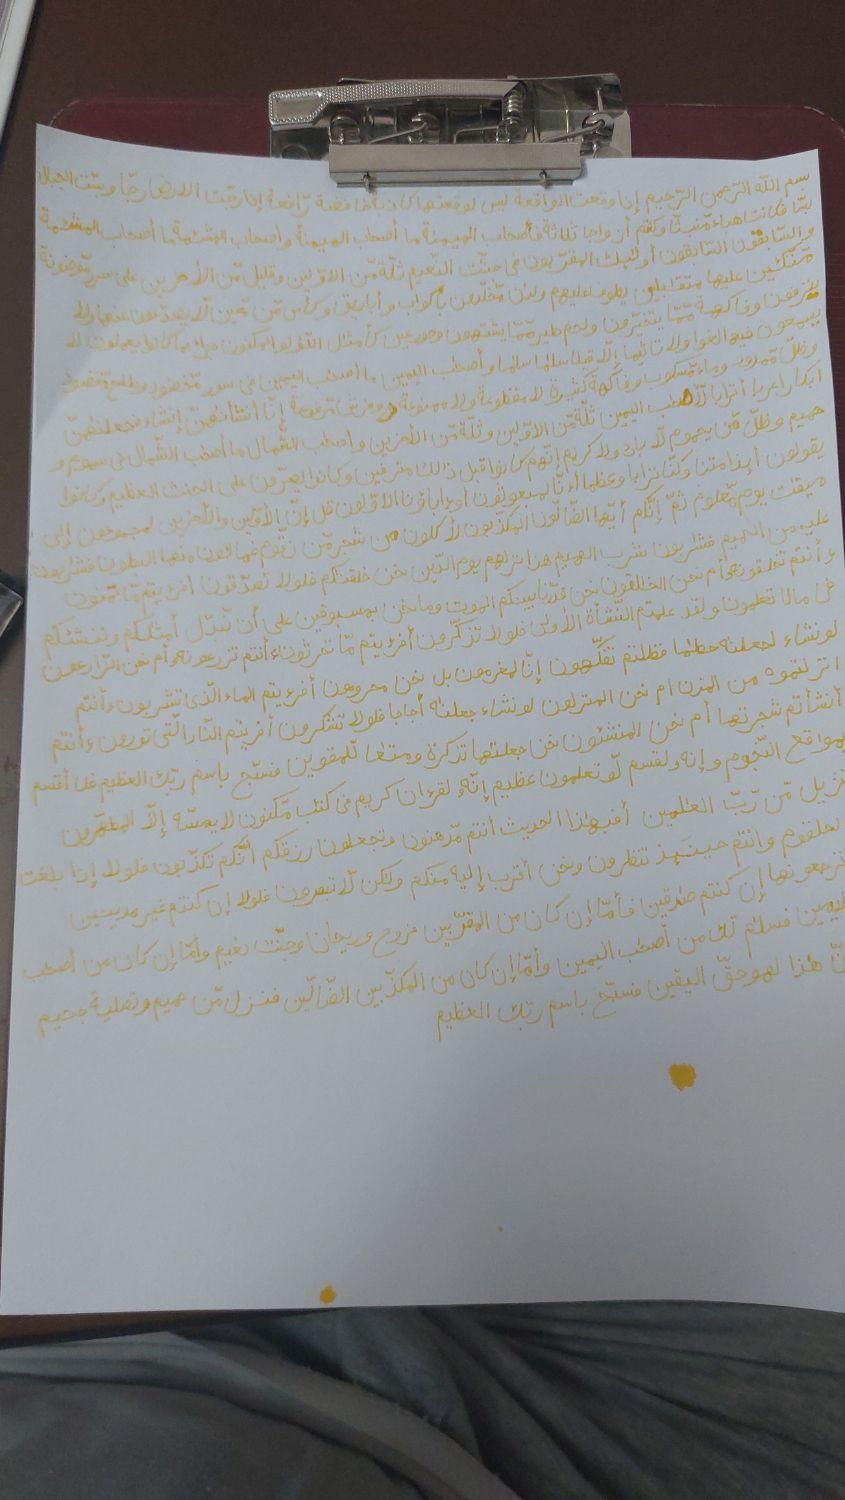 بسم الله الرّحمن الرّحيم إذا وقعت الواقعة ليس لوقعتها كاذبة خافضة رّافعة إذا رجّت الارض رجّا وبسّت الجبال
بسّا فكانت هباء مّنبثّا وكنتم أزواجا ثلاثة فأصحاب الميمنة ما أصحاب الميمنة وأصحاب المشئمة ما أصحاب المشئمة
والسّابقون السّابقون أولئك المقرّبون فى جنّت النّعيم ثلّة مّن الاوّلين وقليل مّن الأخرين على سرر مّوضونة
مّتّكئين عليها متقابلين يطوف عليهم ولدن مّخلّدون بأكواب وأباريق وكأس مّن مّعين لّا يصدّعون عنها ولا
ينزفون وفاكهة مّمّا يتخيّرون ولحم طير مّمّا يشتهون وحور عين كأمثل اللّؤلؤ المكنون جزاء بما كانوا يعملون لا
يسمعون فيها لغوا ولا تاثيما إلّا قيلا سلما سلما وأصحٰب اليمين ما أصحٰب اليمين فى سدر مّخضود وطلح مّنضود
وظلّ مّمدود وماء مّسكوب وفاكهة كثيرة لا مقطوعة ولا ممنوعة وفرش مّرفوعة إنّا أنشأنٰهنّ إنشاء فجعلنٰهنّ
أبكارا عربا أترابا لّأصحٰب اليمين ثلّة مّن الاوّلين وثلّة مّن الأخرين وأصحٰب الشّمال ما أصحٰب الشّمال فى سموم و
حميم وظلّ مّن يحموم لّا بارد ولا كريم إنّهم كانوا قبل ذالك مترفين وكانوا يصرّون على الحنث العظيم وكانوا
يقولون أىٔذا متنا وكنّا ترابا وعظما أءنّا لمبعوثون أوءاباؤنا الاوّلون قل إنّ الأوّلين والأخرين لمجموعون إلى
ميقت يوم مّعلوم ثمّ إنّكم أيّها الضّالّون المكذّبون لأكلون من شجر مّن زقّوم فمالئون منها البطون فشٰربون
عليه من الحميم فشٰربون شرب الهيم هذا نزلهم يوم الدّين نحن خلقنكم فلولا تصدّقون أفرءيتم مّا تمنون
ءأنتم تخلقونهۥ أم نحن الخلقون نحن قدّرنا بينكم الموت وما نحن بمسبوقين على أن نّبدّل أمثلكم وننشئكم
فى مالا تعلمون ولقد علمتم النّشأة الأولى فلولا تذكّرون أفرءيتم مّا تحرثون ءأنتم تزرعونه أم نحن الزّارعون
لو نشاء لجعلنه حطٰما فظلتم تفكّهون إنّا لمغرمون بل نحن محرومون أفرءيتم الماء الّذى تشربون ءأنتم
انزلتموه من المزن ام نحن المنزلون لو نشاء جعلنه أجاجا فلولا تشكرون أفرءيتم النّار الّتى تورون ءأنتم
أنشأتم شجرتها أم نحن المنشئون نحن جعلنها تذكرة ومتعا لّلمقوين فسبّح باسم ربّك العظيم فلا أقسم
بمواقع النّجوم وإنهۥ لقسم لّو تعلمون عظيم إنّهۥ لقرءان كريم فى كتٰب مّكنون لا يمسّهۥ إلّا المطهّرون
تنزيل مّن رّبّ العٰلمين أفبهذا الحديث أنتم مّدهنون وتجعلون رزقكم أنّكم تكذّبون فلولا إذا بلغت
الحلقوم وانتم حينئذ تنظرون ونحن أقرب إليه منكم ولكن لّا تبصرون فلولا إن كنتم غير مدينين
ترجعونها إن كنتم صٰدقين فأمّا إن كان من المقرّبين فروح وريحان وجنّت نعيم وأمّا إن كان من أصحٰب
اليمين فسلٰم لّك من أصحٰب اليمين وأمّا إن كان من المكذّبين الضّالّين فنزل مّن حميم وتصلية جحيم
إنّ هٰذا لهو حقّ اليقين فسبّح باسم ربّك العظيم